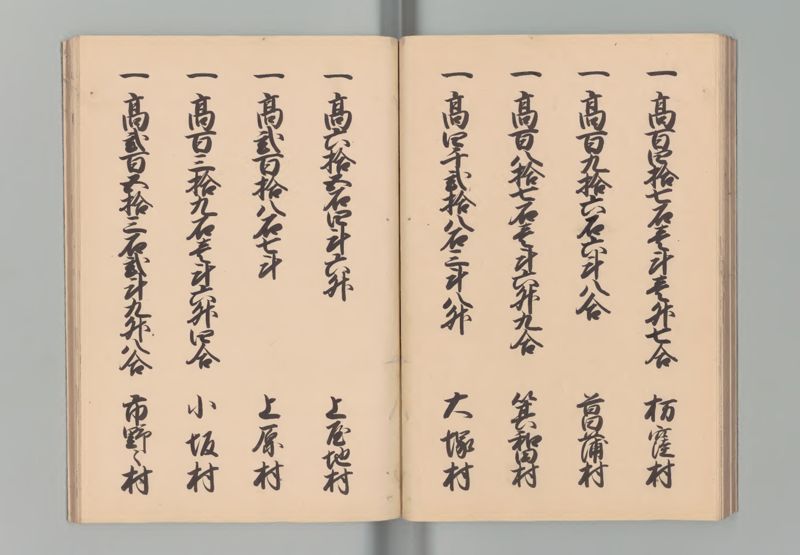 一 高百四拾七石壱斗壱升七合 栃窪村
一 高百九拾六石六斗八合 菖蒲村
一 高百八拾七石壱斗六升九合 箕和田村
一 高四千弐拾八石三斗八升 大塚村
一 高六拾五石四斗六升 上屋地村
一 高弐百拾八石七斗 上原村
一 高百三拾九石壱斗六升四合 小坂村
一 高弐百五拾三石弐斗九升八合 市野々村